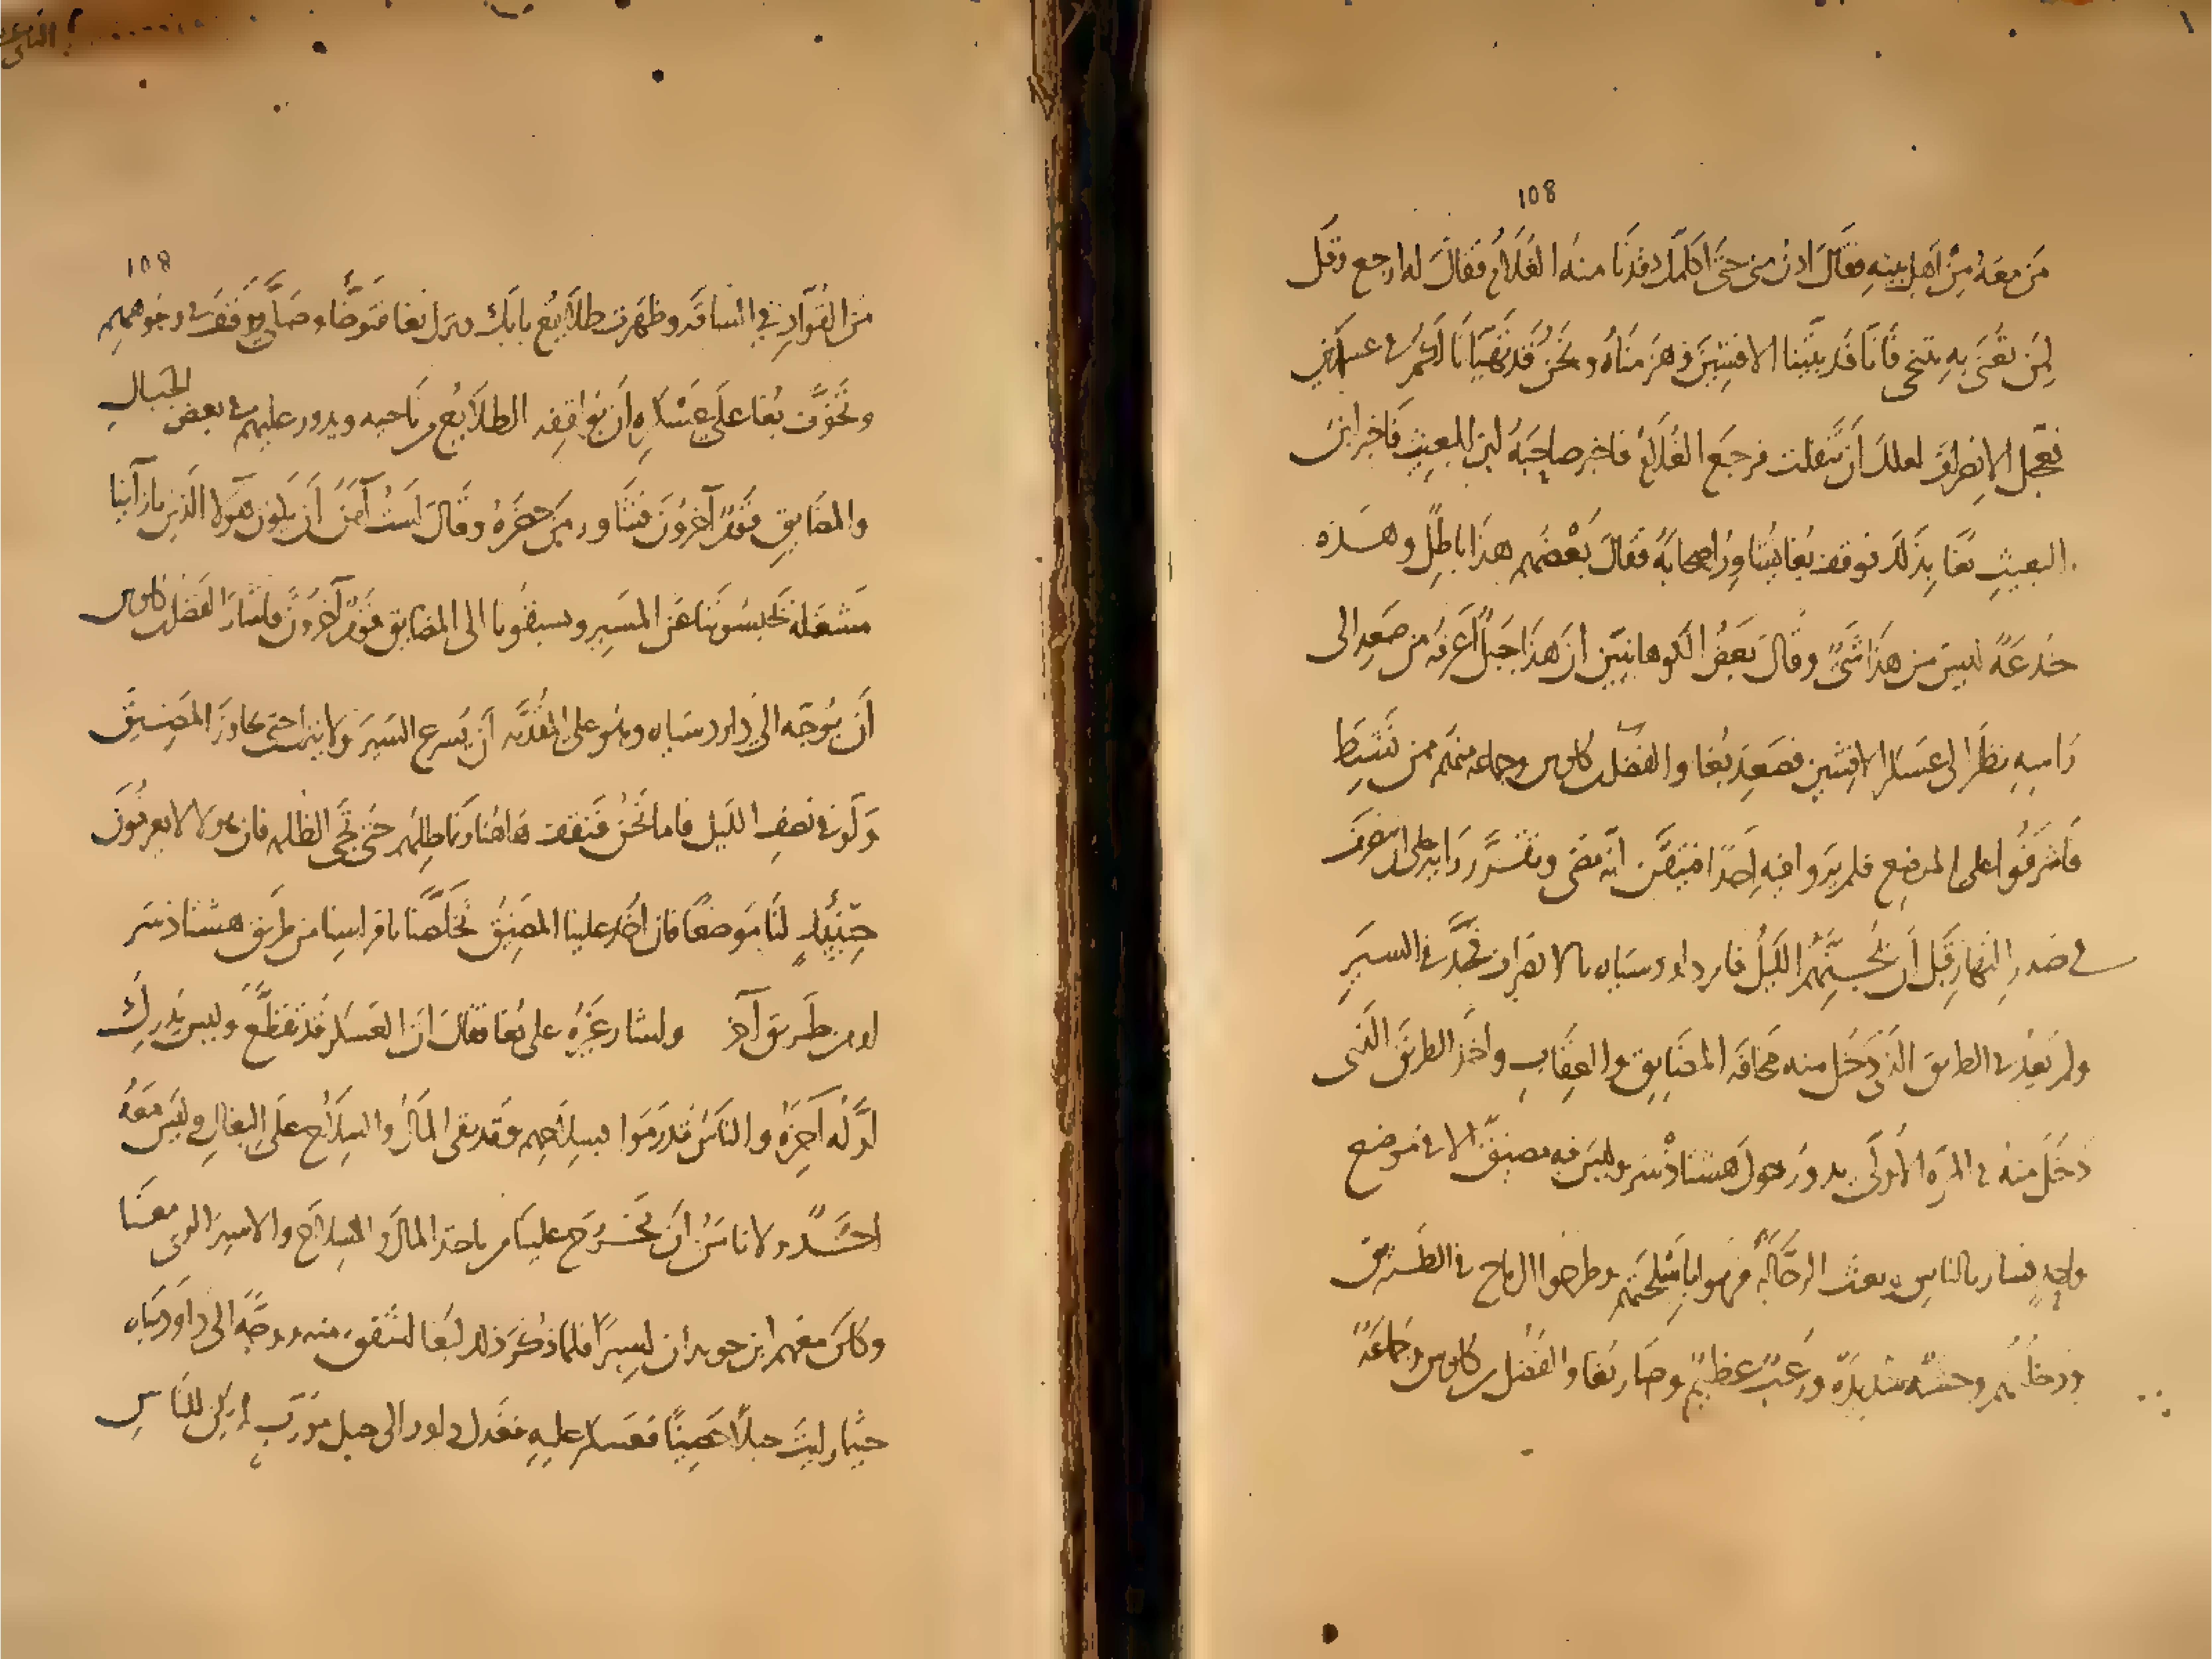 108
من معه من اهل بيته فقال ادن منى حتى اكلمك فدنا منه الغلام فقال له ارجع وقل
لمن تعنى به يتنحى فانا قد بيتنا الافشين وهزمناه ونحن قد تهيأنا لكم في عسكرين
فعجل الانصراف لعلك ان تفلت فرجع الغلام فاخبر صاحبه ابن البعيث فاخبر ابن
البعيث بغا بذلك فوقف بغا يشاور اصحابه فقال بعضهم هذا باطل وهذه
خدعة ليس من هذا شئ وقال بعض الكوهانيين ان هذا جبل اعرفه من صعد الى
راسه نظر الى عسكر الافشين فصعد بغا والفضل كاوس وجماعه منهم ممن نشط
فاشرفوا على الموضع فلم يروا فيه احدا فتيقن انه مضى وتقرر رايه على ان ينصرف
في صدر النهار قبل ان يجنهم الليل فامر داود سياه بالانصراف فجد في السير
ولم يعد في الطريق الذى دخل منه مخافة المضايق والعقاب واخذ الطريق الذى
دخل منه في المره الاولى يدور حول هشتاذسر وليس فيه مضيق الا في موضع
واحد فسار بالناس وبعث الرجالة فرموا باسلحتهم وطرحوا الرماح في الطريق
ودخلتهم وحشه شديدة ورعب عظيم وصار بغا والفضل كاوس وجماعة
108
من القواد في الساقه وظهرت طلايع بابك فنزل بغا فتوضا وصلى ووقف في وجوههم
وتخوف بغا على عسكره ان يواقفه الطلايع من ناحيه ويدور عليهم في بعض الجبال
والمضايق قوم آخرون فشاور من حضره وقال لست آمن ان يكون هولا الذين بازآينا
مشغلة يحبسوننا عن المسير ويسبقونا الى المضايق قوم آخرون فاشار الفضل كاوس
أن يوجه الى داود سياه وهو على المقدمه ان يسرع السير ولا ينزل حتى يجاوز المضيق
ولو في نصف الليل فاما نحن فنقف هاهنا ونماطلهم حتى تجى الظلمه فان هولا لا يعرفون
حينئذ لنا موضعا فان اخذ علينا المضيق تخلصنا بافراسنا من طريق هشتاذسر
او من طريق آخر واشار غيره على بغا فقال ان العسكر قد تقطع وليس يدرك
اوله آخره والناس قد رموا بسلاحهم وقد بقى المال والسلاح على البغال وليس معه
احد ولا نامن ان يخرج علينا من ياخذ المال والسلاح والاسير الذى معنا
وكان معهم ابن جويدان اسيرا فلما ذكر ذلك لبغا اشفق منه ووجه الى داود سياه
حيثما رايت جبلا حصينا فعسكر عليه فعدل داود الى جبل مورب لم يكن للناس